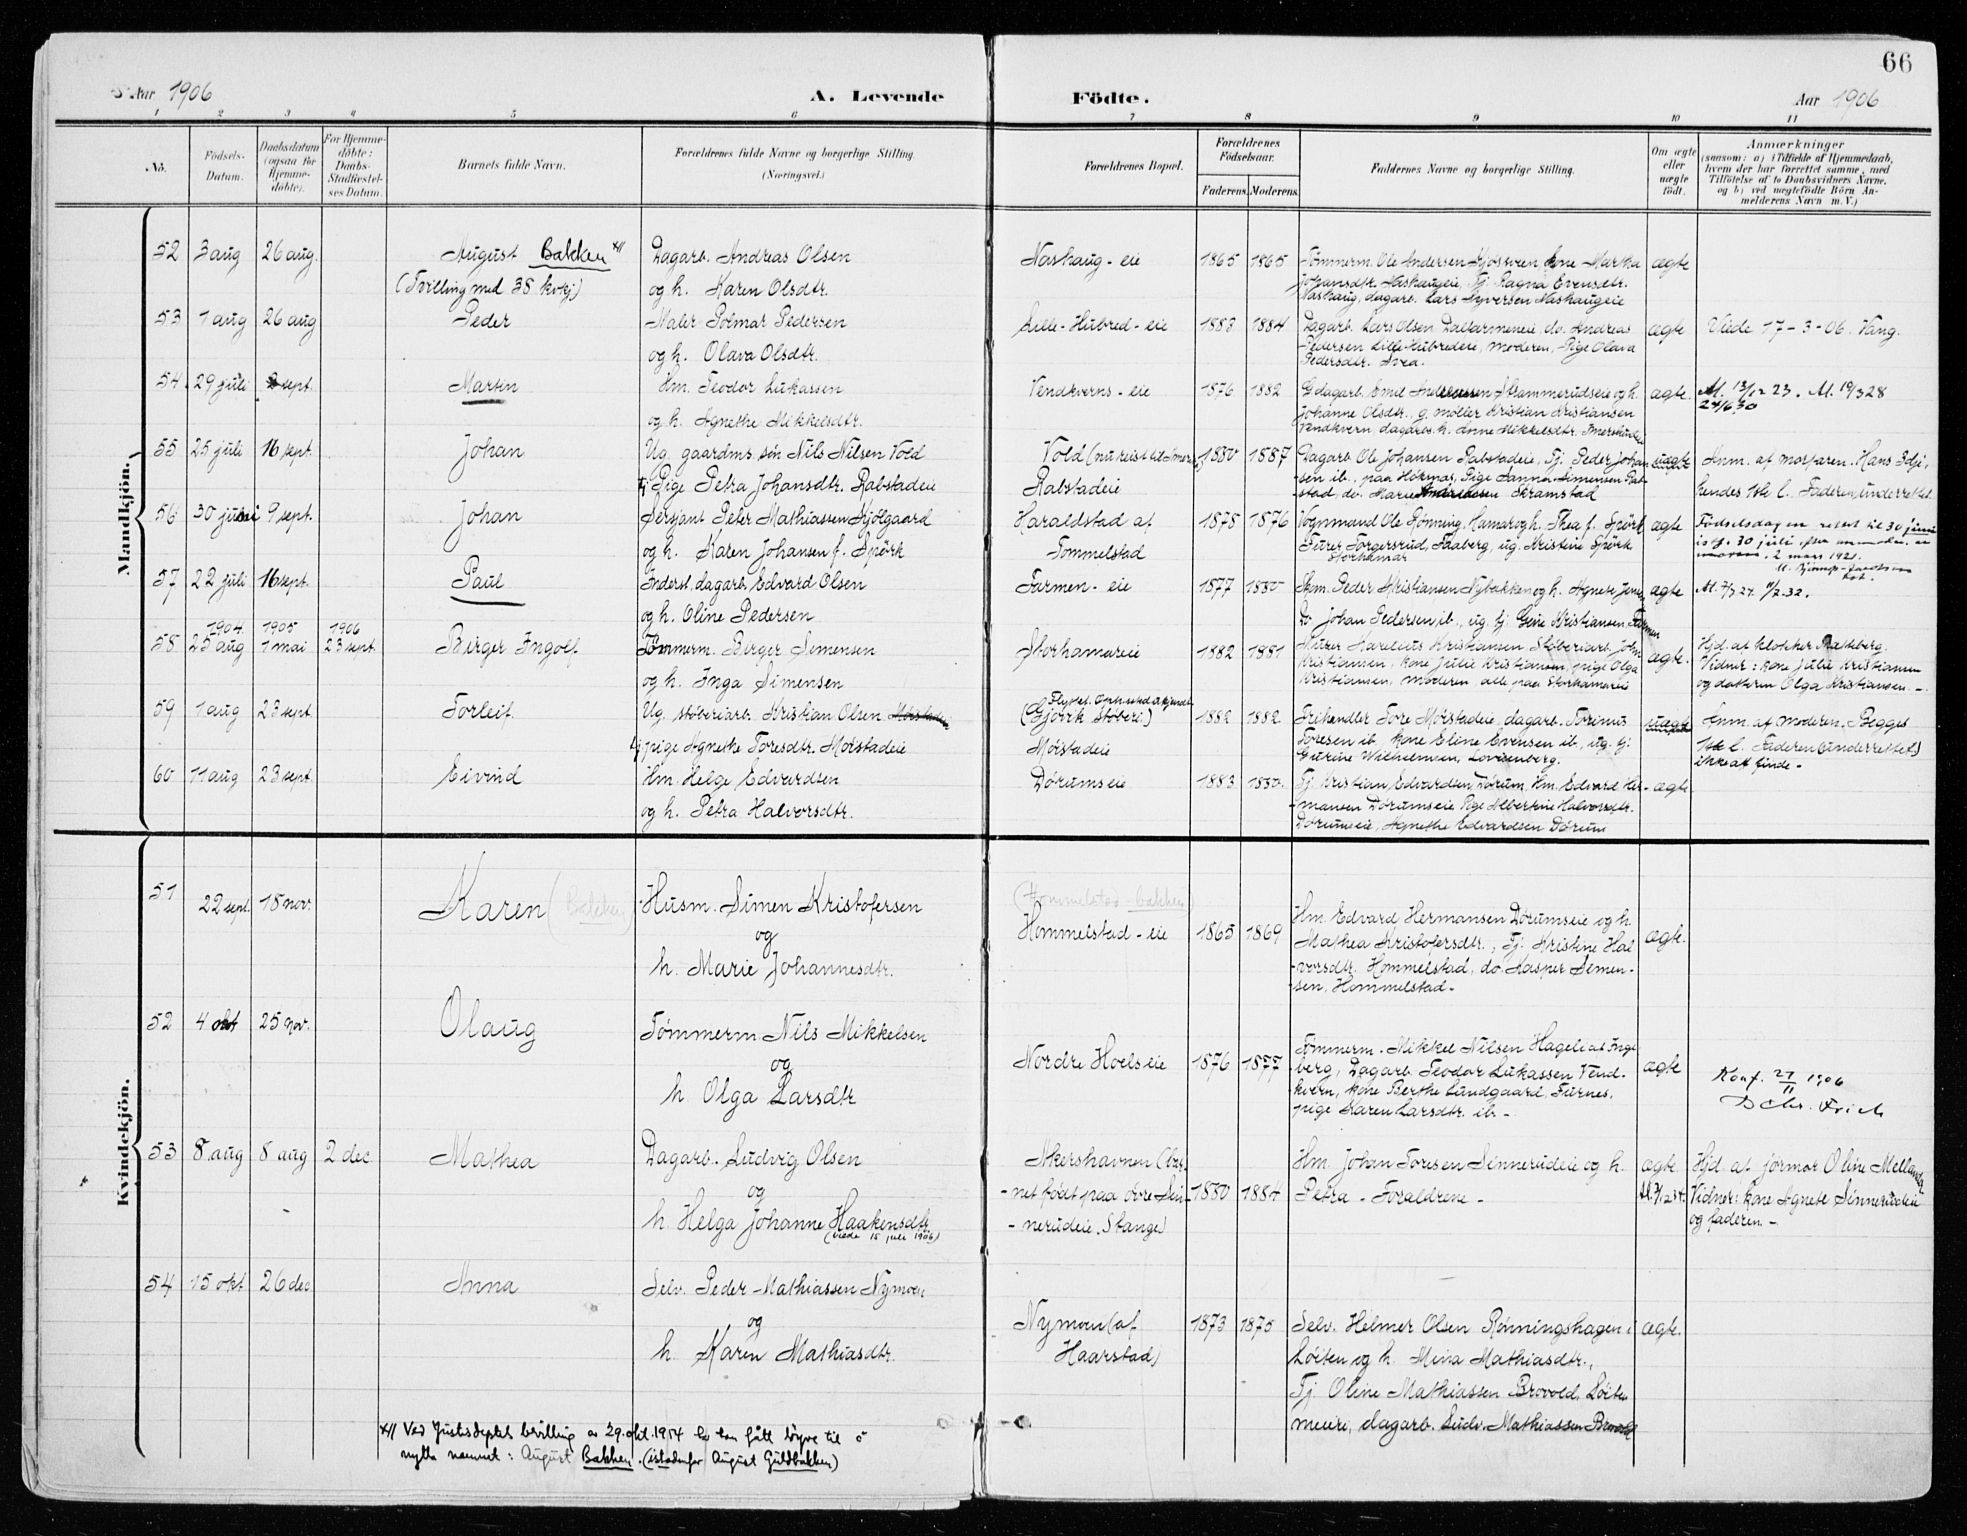 66
Aar 1906
A. Levende
Födte.
Aar 1906
1 2 3 4 5 6 7 8 9 10 11
No.
Födsels-
Datum.
Daabsdatum
(ogsaa for
Hjemme-
döbte).
For Hjemme-
döbte:
Daabs-
Stadfæstel-
ses Datum.
Barnets fulde Navn.
Forældrenes fulde Navne og borgerlige Stilling
(Næringsvei.)
Forældrenes Bopæl.
Forældrenes
Födselsaar.
Faderens. Moderens.
Faddernes Navne og borgerlige Stilling.
Om ægte
eller
uægte
født.
Anmærkninger
(saasom: a) i Tilfælde af Hjemmedaab,
hvem der har forrettet samme, med
Tilføielse af to Daabsvidners Navne,
og b) ved uægtefødte Börn An-
melderens Navn m. V.)
Mandkjön.
52 3 aug 26 aug. August Bakken x//
(Tvilling med 38 kvkj)
Dagarb. Andreas Olsen
og h. Karen Olsdtr.
Nashaug-eie 1865 1865
Tømmerm. Ole Andersen kone Martha
Johansdtr. Nashaugeie, Tj. Ragna Evensdtr.
Nashaug, dagarb. Lars Syversen Nashaugeie
ægte
53 1 aug 26 aug Peder
Maler Polmar Pedersen
og h. Olava Olsdtr.
Lille-Hubred-eie 1883 1884
Dagarb. Lars Olsen Dalfarmeneie, do. Andreas
Pedersen Lille Hubredeie, moderen, Pige Olava
Pedersdtr.
ægte
Viede 17-3-06. Vang.
54. 29 juli sept. Martin
Hm. Teodor Lukassen
og h. Agnethe Mikkelsdtr.
Vendkverns-eie 1876 1882
Gdagarb. Emil Skammerudseie og h.
Johanne Olsdtr., g. møller Kristian Kristiansen
Vendkvern, dagarbs. h. Anne Mikkelsdtr.
ægte.
At. 13/12 23. At. 19/3 28
24/6.30
55 25 juli 16 sept. Johan
Ug. gaardms. søn Nils Nilsen Vold
Pige Petra Johansdtr. Rabstadeie
Vold (nu reist til
Rabstadeie
1880 1887
Dagarb. Ole Johansen Rabstadeie, Tj. Peder Johan-
sen ib., paa Høknæs, Pige Hanna Simensen Rab-
stad, do. Marie Skramstad
uægte
Anm. af morfaren, Hans
hendes 1ste l. Faderen underrettet
56 30 9 sept. Johan
Sersjant Peter Mathiassen Hjølgaard
og h. Karen Johansen f. Spørk
Haraldstad af
Tommelstad
1878 1876
Vognmand Ole Rønning, Hamar og h. Thea f. Spørk
Furer Torgersrud, Faaberg, ug. Kristine Spørk
Storhamar
ægte
Födselsdagen rettet til 30 juni
istf. 30 juli efter
2 mars 1921.
57 22 juli 16 sept. Paul
Inderst, dagarb. Edvard Olsen
og h. Oline Pedersen
Farmen-eie 1877 1880
Skm. Peder Kristiansen Nybakken og h. Agnete Jensen
Do Johan Pedersen ib., ug. tj. Gine Kristiansen, Farmen
ægte
At. 7/3 27. 11/2.32.
1904 1905 1906
58 25 aug 1 mai 23 sept. Birger Ingolf
Tømmerm. Birger Simensen
og h. Inga Simensen
Storhamareie 1882 1881
Murer Karelius Kristiansen Støberiarb. John
Kristiansen, kone Julie Kristiansen, pige Olga
Kristiansen, moderen, alle paa Storhamareie
ægte.
Hjd. af klokker Rasteberg.
Vidner: kone Julie Kristiansen
og datteren Olga Kristiansen.-
59 1 aug 23 sept Torleif
Ug. støberiarb. Kristian Olsen Morstadeie
pige Agnethe Toresdtr. Morstadeie
(Gjøvik Støberi)
Morstadeie
1882 1882
Frihandler Tore Morstadeie, dagarb. Torinus
Toresen ib. kone Eline Evensen ib., ug. tj.
Gurine Wilhelmsen, Lovisenberg.
uægte
Anm. af moderen. Begges
1ste l. Faderen (underrettet)
ikke at finde-
60 11 aug 23 sept. Eivind
Hm. Helge Edvardsen
og h. Petra Halvorsdtr.
Dørumseie 1883 1880.
Tj. Kristian Edvardsen, Dørum, Hm. Edvard Her-
mansen Dørumseie Pige Albertine Halvorsdtr.
Dørumseie, Agnethe Edvardsen Dørum
ægte
Kvindekjön.
51 22 sept. 18 nov. Karen (Bakken)
Husm. Simen Kristofersen
og
h. Marie Johannesdtr.
(Hommelstad-bakken)
Hommelstad-eie 1865 1869
Hm. Edvard Hermansen Dørumseie og h.
Mathea Kristofersdtr., Tj. Kristine Hal-
vorsdtr. Hommelstad, do. Kasper Simen-
sen, Hommelstad-
ægte.
52 4 okt 25 nov. Olaug
Tømmerm Nils Mikkelsen
og
h. Olga Larsdtr
Nordre Hoelseie 1876 1877
Tømmerm. Mikkel Nilsen Hageli af Inge-
berg, Dagarb. Teodor Lukassen Vend-
kvern, kone Berthe Lundgaard, Furnes,
pige Karen Larsdtr. ib-
ægte
Konf. 27/11 1906
53 8 aug 8 aug 2 dec Mathea
Dagarb. Ludvig Olsen
og
h. Helga Johanne Haakensdtr
(viede 15 juli 1906)
Akershavnen (bar-
net født paa øvre Sin-
nerudeie. Stange)
1880 1884
Hm. Johan Toresen Sinnerudeie og h.
Petra - Forældrene -
ægte
At. 7/12 34.
Hjd. af jormor Oline
Vidner: kone Agnete Sinnerudeie
og faderen-
54 15 okt 26 dec Anna
Selv. Peder Mathiassen Nymoen
og
h. Karen Mathiasdtr.
Nymoen (af
Haarstad)
1873 1875
Selv. Helmer Olsen Rønningshagen i
Løiten og h. Mina Mathiasdtr.,
Tj. Oline Mathiassen Brovold, Løiten
meieri, dagarb. Ludv. Mathiassen Brovold
ægte.
x// Ved Justisdeptets bevilling av 29. okt. 1914 har han fått løyve til å
nytta namnet: August Bakken. (istadenfor August Guldbakken)